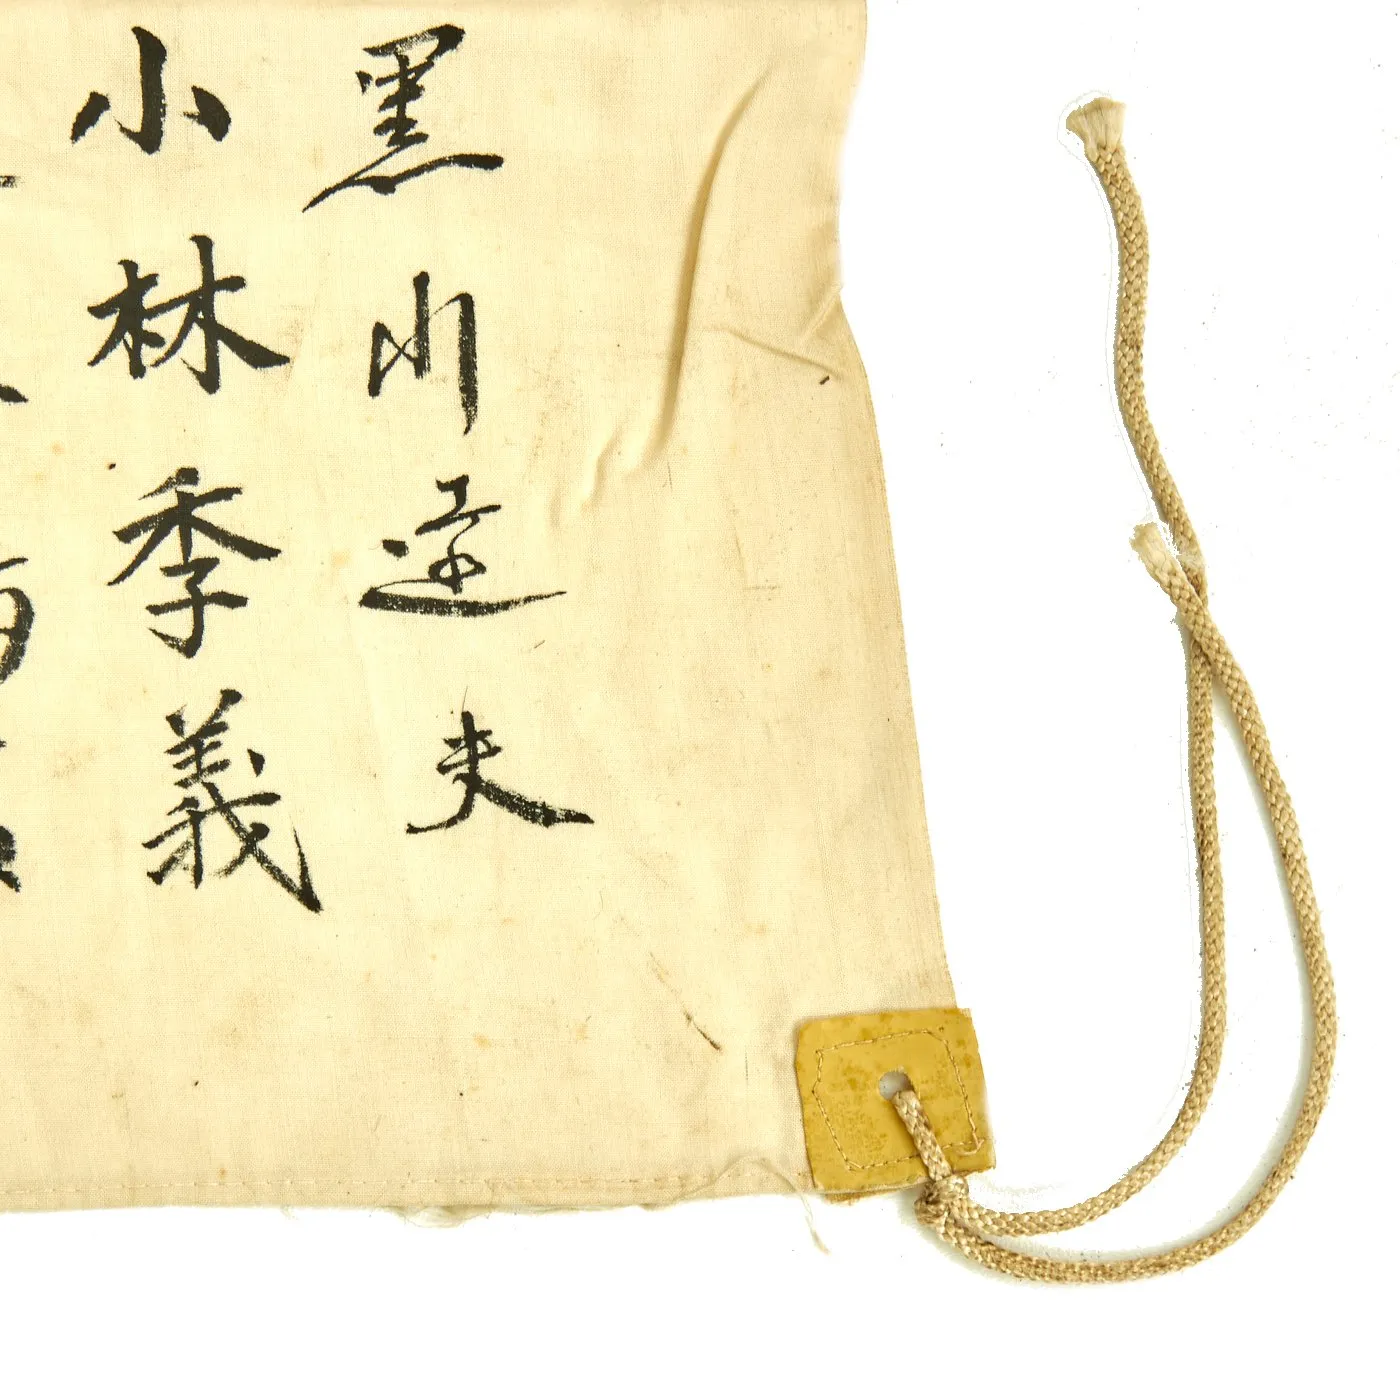 黒川達夫
小林季義